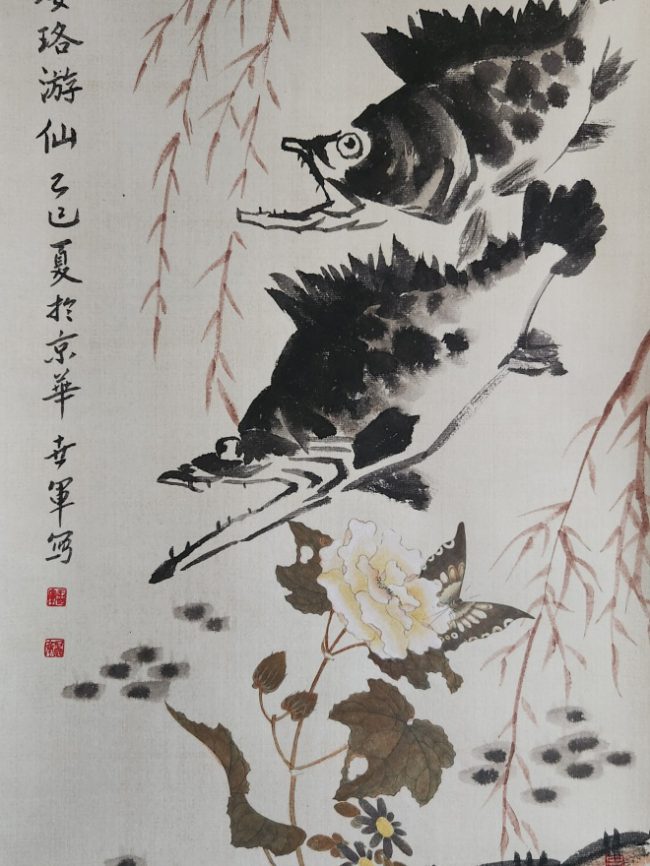 珞游仙乙巳夏於京華世軍写